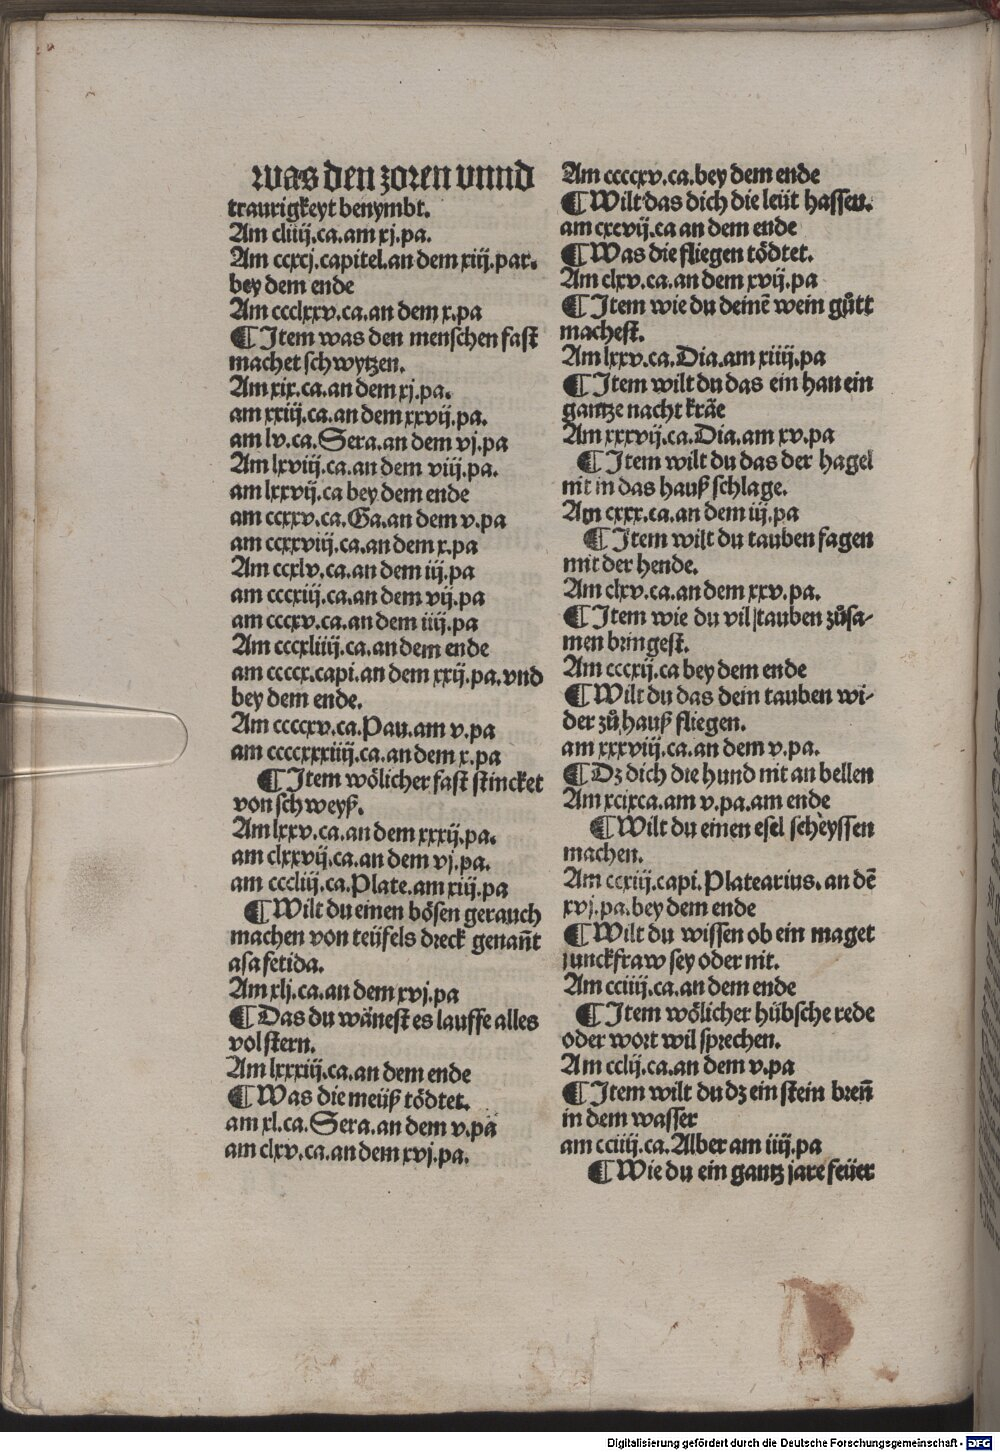 was den zoren vnnd
traurigkeyt benymbt.
Am cliiij.ca.am xj.pa.
Am ccxcj.capitel.an dem xiij.par.
bey dem ende
Am ccclxxv.ca.an dem x.pa
¶ Item was den menschen fast
machet schwytzen.
Am xix.ca.an dem xj.pa.
am xxiij.ca.an dem xxvij.pa.
am lv.ca.Sera.an dem vj.pa
Am lxviij.ca.an dem viij.pa.
am lxxvij.ca bey dem ende
am ccxxv.ca.Ga.an dem v.pa
am ccxxviij.ca.an dem x.pa
Am ccxlv.ca.an dem iij.pa
am cccxiij.ca.an dem vij.pa
am cccxv.ca.an dem iiij.pa
Am cccxliiij.ca.an dem ende
am ccccx.capi.an dem xxij.pa.vnd
bey dem ende.
Am ccccxv.ca.Pau.am v.pa
am ccccxxxiiij.ca.an dem x.pa
¶ Item wölicher fast stincket
von schweyß.
Am lxxv.ca.an dem xxxij.pa.
am clxxvij.ca.an dem vj.pa.
am cccliij.ca.Plate.am xiij.pa
¶ Wilt du einen bösen gerauch
machen von teüfels dreck genañt
asa fetida.
Am xlj.ca.an dem xvj.pa
¶ Das du wänest es lauffe alles
vol stern.
Am lxxxiij.ca.an dem ende
¶ Was die meüß tödtet.
am xl.ca.Sera.an dem v.pa
am clxv.ca.an dem xvj.pa.
Am ccccxv.ca.bey dem ende
¶ Wilt das dich die leüt hassen.
am cxcvij.ca an dem ende
¶ Was die fliegen tödtet.
Am clxv.ca.an dem xvij.pa
¶ Item wie du deinē wein gůtt
machest.
Am lxxv.ca.Dia.am xiiij.pa
¶ Item wilt du das ein han ein
gantze nacht kräe
Am xxxvij.ca.Dia.am xv.pa
¶ Item wilt du das der hagel
nit in das hauß schlage.
Am cxxx.ca.an dem iij.pa
¶ Item wilt du tauben fagen
mit der hende.
Am clxv.ca.an dem xxv.pa.
¶ Item wie du vil tauben zůsa-
men bringest.
Am cccxij.ca bey dem ende
¶ Wilt du das dein tauben wi-
der zů hauß fliegen.
am xxxviij.ca.an dem v.pa.
¶ Dz dich die hund nit an bellen
Am xcixca.am v.pa.am ende
¶ Wilt du einen esel scheyssen
machen.
Am ccxiij.capi.Platearius.an dē
xvj.pa.bey dem ende
¶ Wilt du wissen ob ein maget
junckfraw sey oder nit.
Am cciiij.ca.an dem ende
¶ Item wölicher hübsche rede
oder wort wil sprechen.
Am cclij.ca.an dem v.pa
¶ Item wilt du dz ein stein breñ
in dem wasser
am cciiij.ca.Alber am iiij.pa
¶ Wie du ein gantz jare feüer
Digitalisierung gefördert durch die Deutsche Forschungsgemeinschaft - DFG